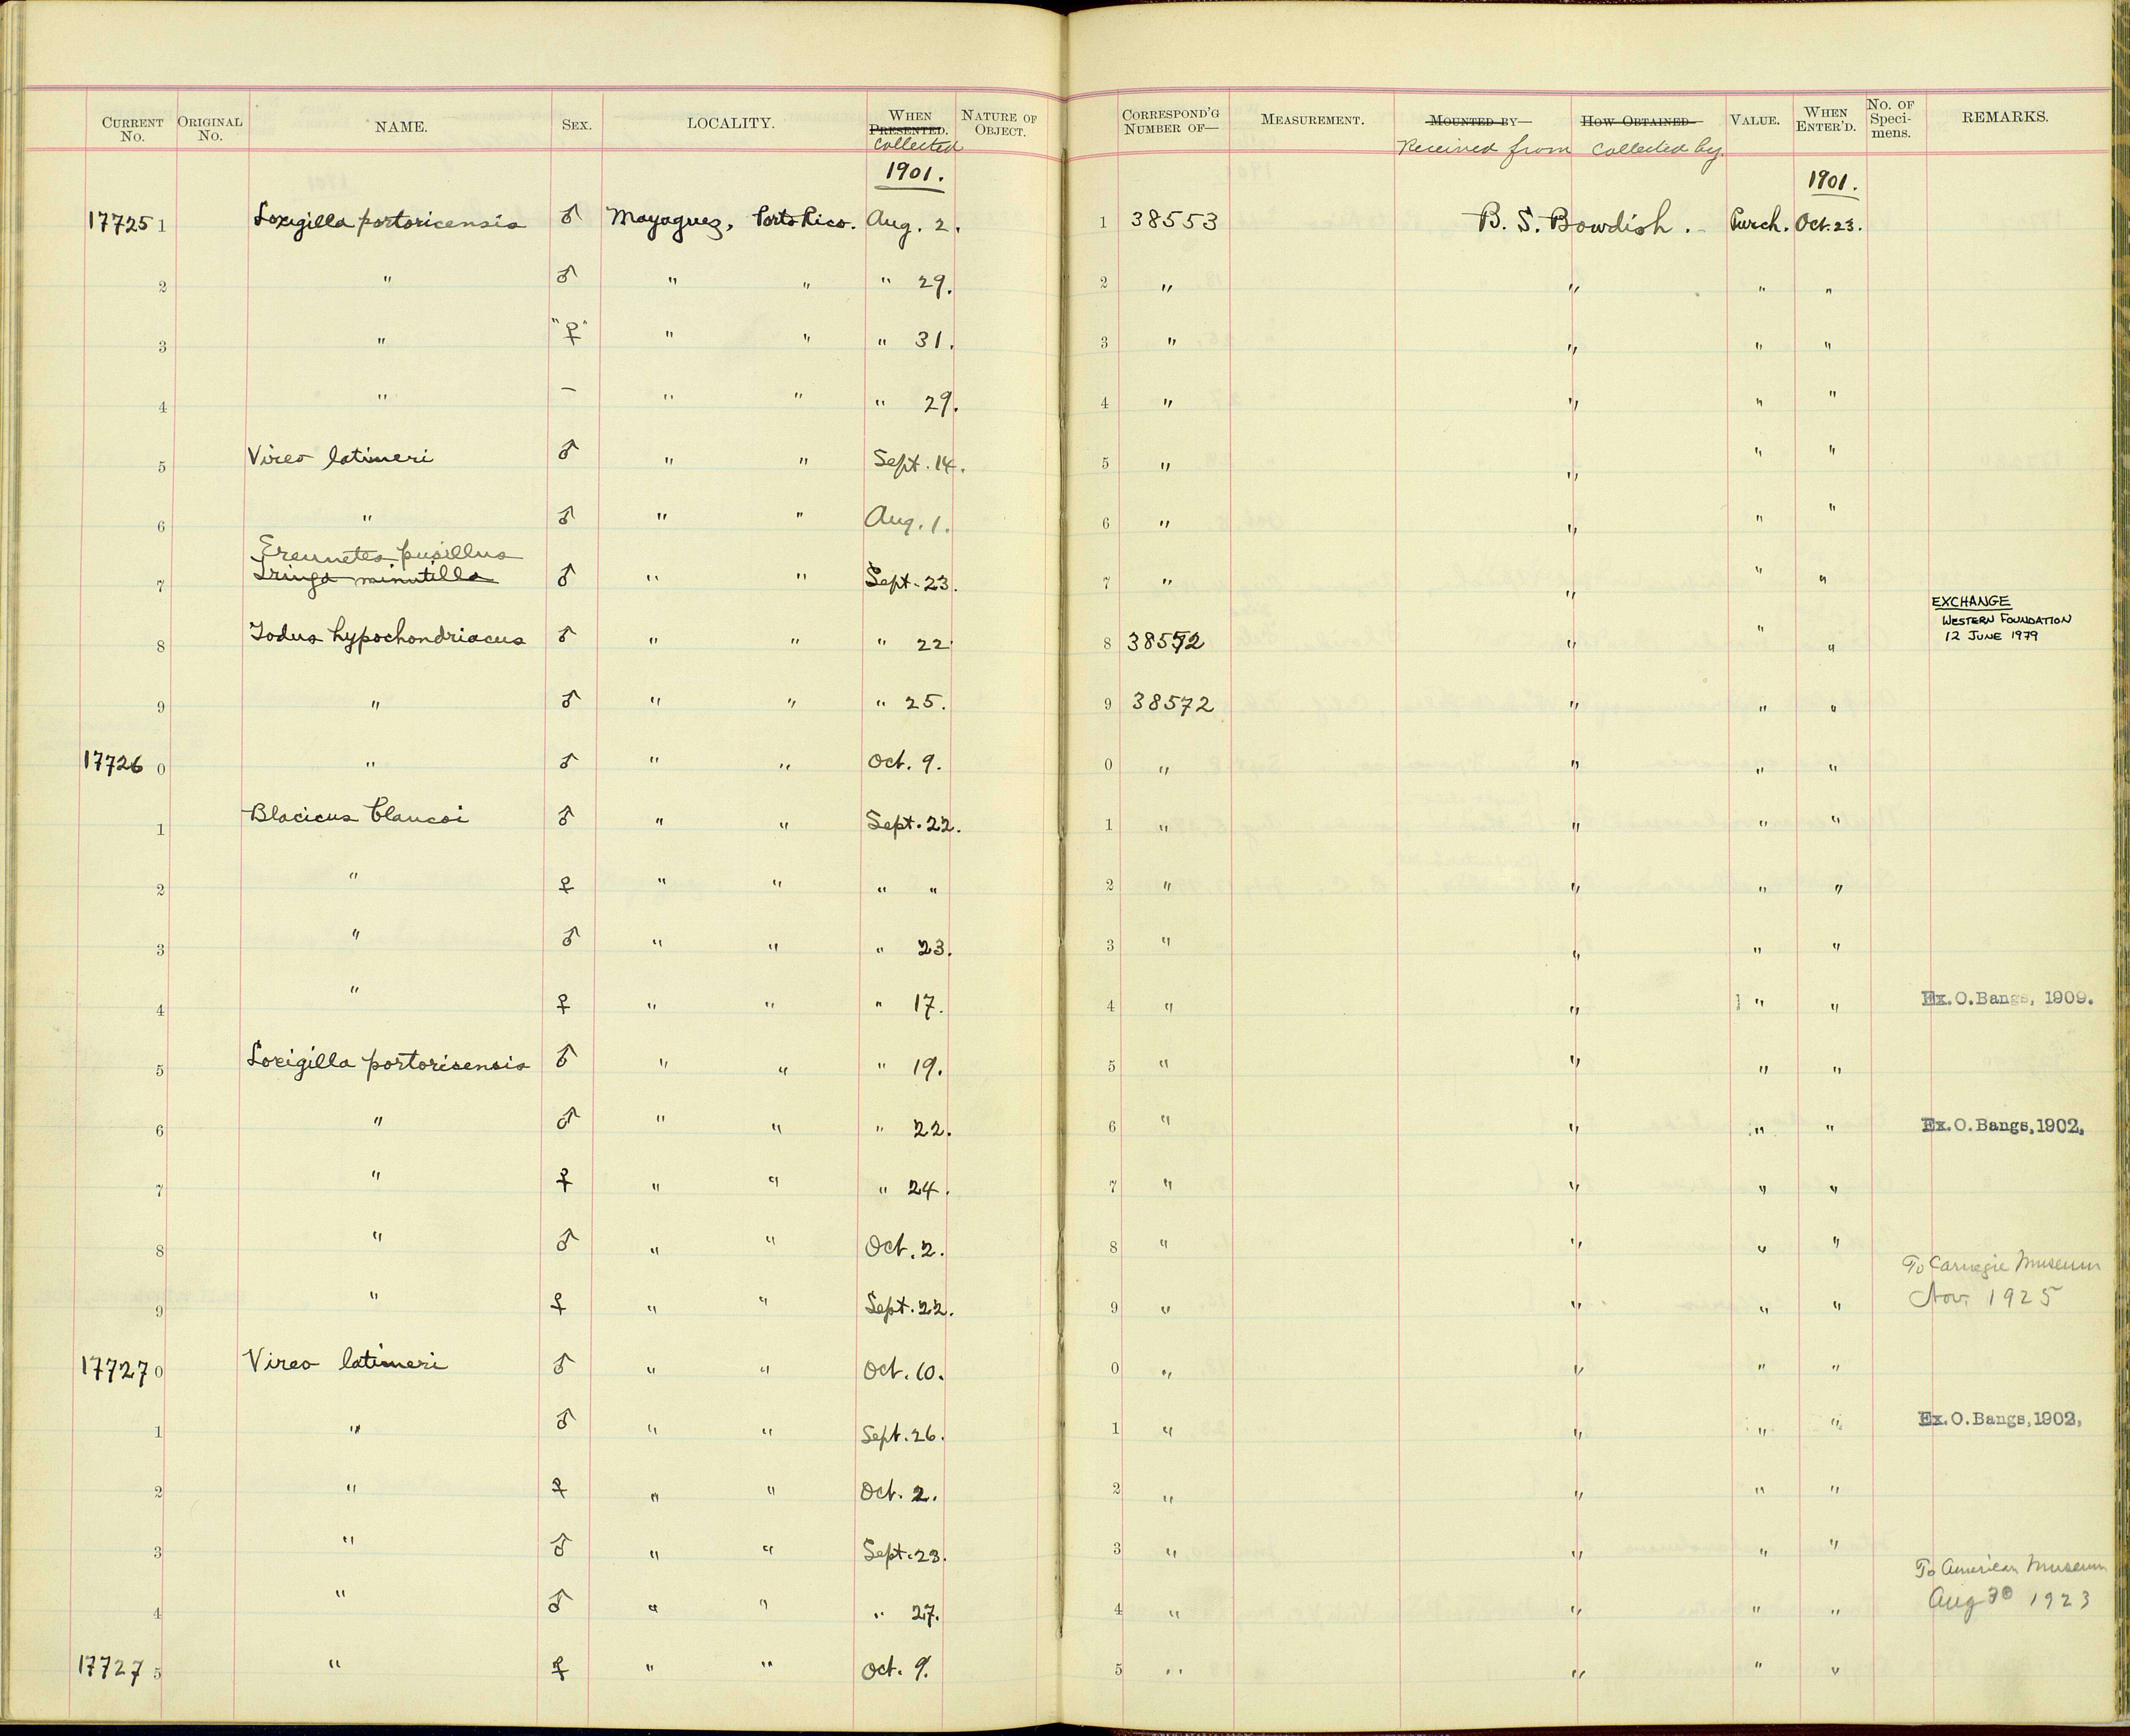 CURRENT No. ORIGINAL No. NAME. SEX. LOCALITY. WHEN PRESENTED. NATURE OF OBJECT. CORRESPOND'G NUMBER OF— MEASUREMENT. MOUNTED BY— HOW OBTAINED VALUE. WHEN ENTER'D. No. OF Speci- mens. REMARKS.
collected Received from collected by
1901. 1901.
17725 1 Loxigilla portoricensis ♂ Mayaguez, Porto Rico. Aug. 2. 1 38553 B. S. Bowdish. Purch. Oct. 23.
2 " ♂ " " " 29. 2 " " " "
3 " "♀" " " " 31. 3 " " " "
4 " – " " " 29. 4 " " " "
5 Vireo latimeri ♂ " " Sept. 14. 5 " " " "
6 " ♂ " " Aug. 1. 6 " " " "
Ereunetes pusillus
7 Tringa minutilla ♂ " " Sept. 23. 7 " " " "
EXCHANGE
WESTERN FOUNDATION
12 JUNE 1979
8 Todus hypochondriacus ♂ " " " 22 8 38572 " " "
9 " ♂ " " " 25. 9 38572 " " "
17726 0 " ♂ " " Oct. 9. 0 " " " "
1 Blacicus blancoi ♂ " " Sept. 22. 1 " " " "
2 " ♀ " " " " 2 " " " "
3 " ♂ " " " 23. 3 " " " "
4 " ♀ " " " 17. 4 " " " " Ex. O. Bangs, 1909.
5 Loxigilla portorisensis ♂ " " " 19. 5 " " " "
6 " ♂ " " " 22. 6 " " " " Ex. O. Bangs, 1902,
7 " ♀ " " " 24. 7 " " " "
8 " ♂ " " Oct. 2. 8 " " " "
To Carnegie Museum
9 " ♀ " " Sept. 22. 9 " " " " Nov. 1925
17727 0 Vireo latimeri ♂ " " Oct. 10. 0 " " " "
1 " ♂ " " Sept. 26. 1 " " " " Ex. O. Bangs, 1902,
2 " ♀ " " Oct. 2. 2 " " " "
3 " ♂ " " Sept. 23. 3 " " " "
To American Museum
4 " ♂ " " " 27. 4 " " " " Aug 30 1923
17727 5 " ♀ " " Oct. 9. 5 " " " "